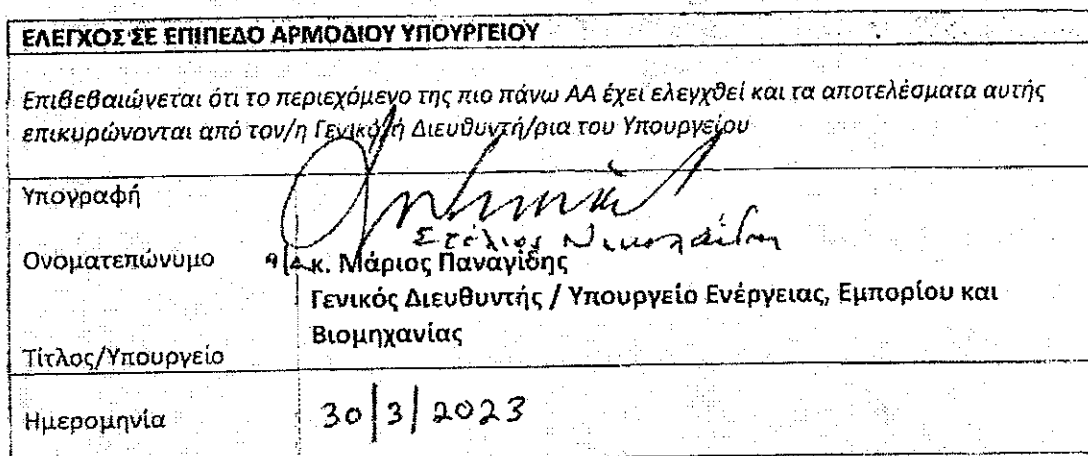 ΕΛΕΓΧΟΣ ΣΕ ΕΠΙΠΕΔΟ ΑΡΜΟΔΙΟΥ ΥΠΟΥΡΓΕΙΟΥ
Επιβεβαιώνεται ότι το περιεχόμενο της πιο πάνω ΑΑ έχει ελεγχθεί και τα αποτελέσματα αυτής
επικυρώνονται από τον/η Γενικό/ή Διευθυντή/ρια του Υπουργείου
Υπογραφή
Στέλιος Νικολαΐδης
Ονοματεπώνυμο κ. Μάριος Παναγίδης
Γενικός Διευθυντής / Υπουργείο Ενέργειας, Εμπορίου και
Βιομηχανίας
Τίτλος/Υπουργείο
Ημερομηνία 30/3/2023